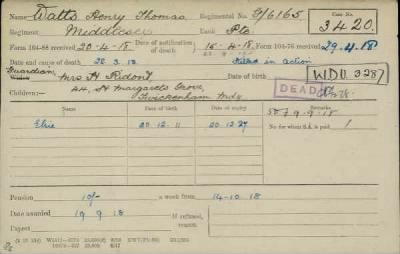 Name Watts Henry Thomas Regimental No. G/6165 Case No.
Regiment Middlesex Rank Pte 3420.
Form 104-88 received 20-4-18 Date of notification of death 15-4-18 Form 104-76 received 29.4.18
Date and cause of death 28.3.18 Killed in action
Guardian Mrs H Date of birth WDU 3287
Children:— 44, St Margarets Grove, DEAD
Twickenham Mdx
Name Date of birth Date of expiry Remarks
Elsie 20.12.11 20.12.27 9.9.18
No for whom S.A. is paid 1
Pension 10/- a week from 14-10-18
Date awarded 19 9 18 If refused, reason
Expect